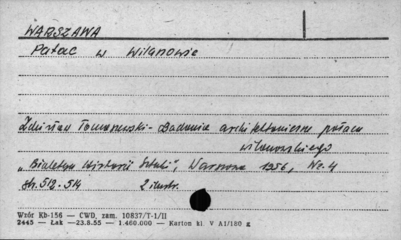 WARSZAWA
Pałac w Wilanowie
Zdzisław Tomaszewski - Badania architektoniczne pałacu
wilanowskiego
„Biuletyn Historii Sztuki", Warszawa 1956, Nr. 4
str. 512-514 2 ilustr.
Wzór Kb-156 — CWD, zam. 10837/T-1/II
2445 — Łak — 23.8.55 — 1.460.000 — Karton kl. V A1/180 g